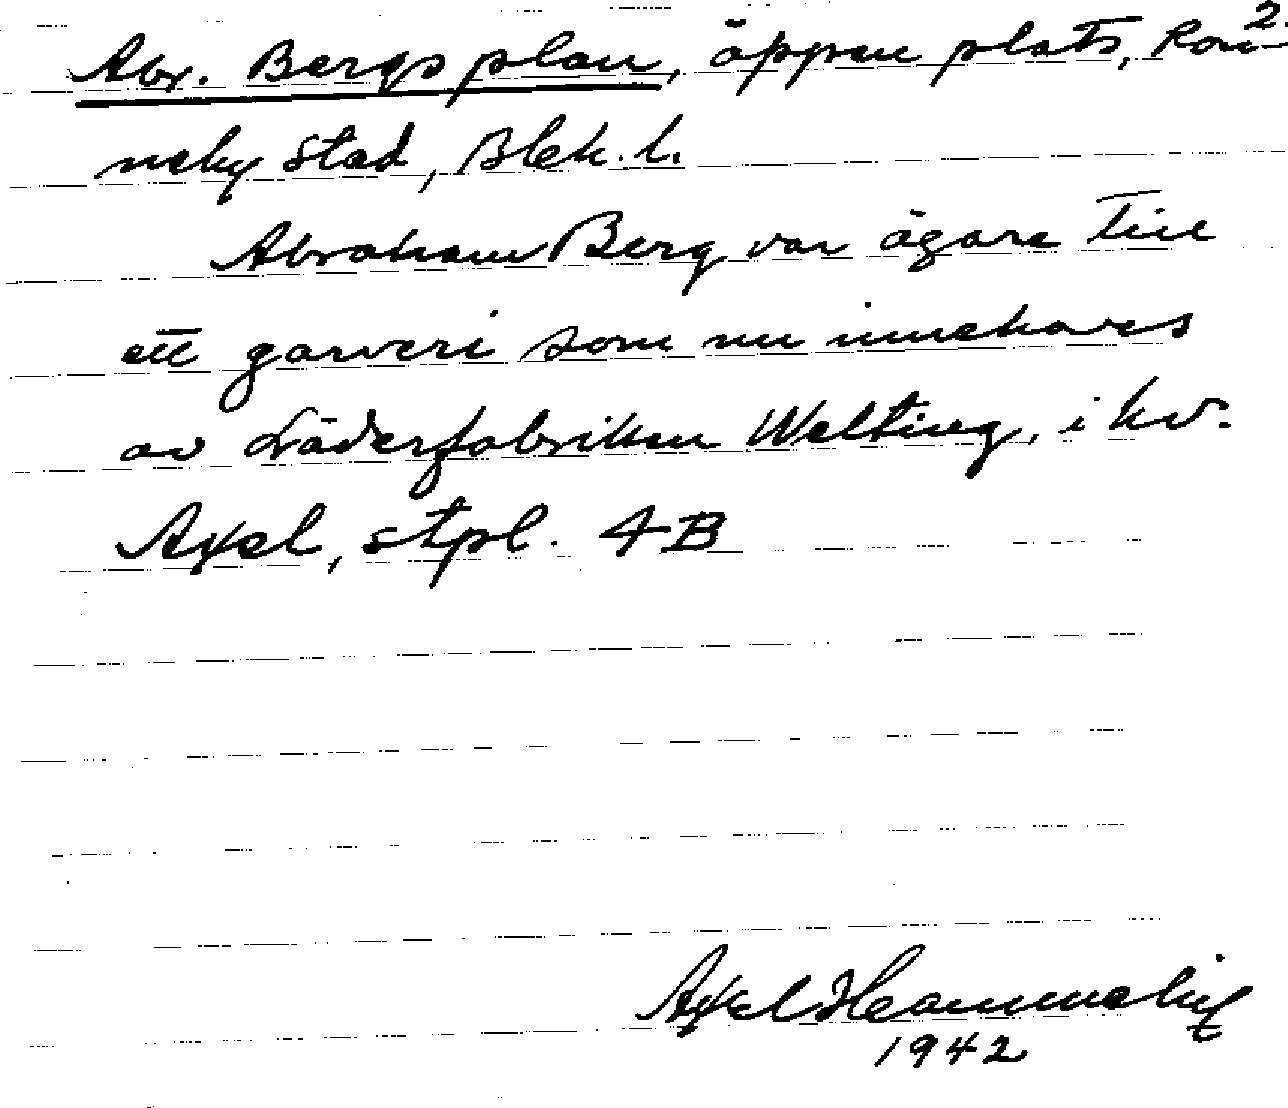 2.
Abr. Bergs plan, öppen plats, Ron-
neby stad, Blek. l.
Abraham Berg var ägare till
ett garveri som nu innehaves
av Läderfabriken Welting, i kv.
Axel, stpl. 4B
Axel
1942